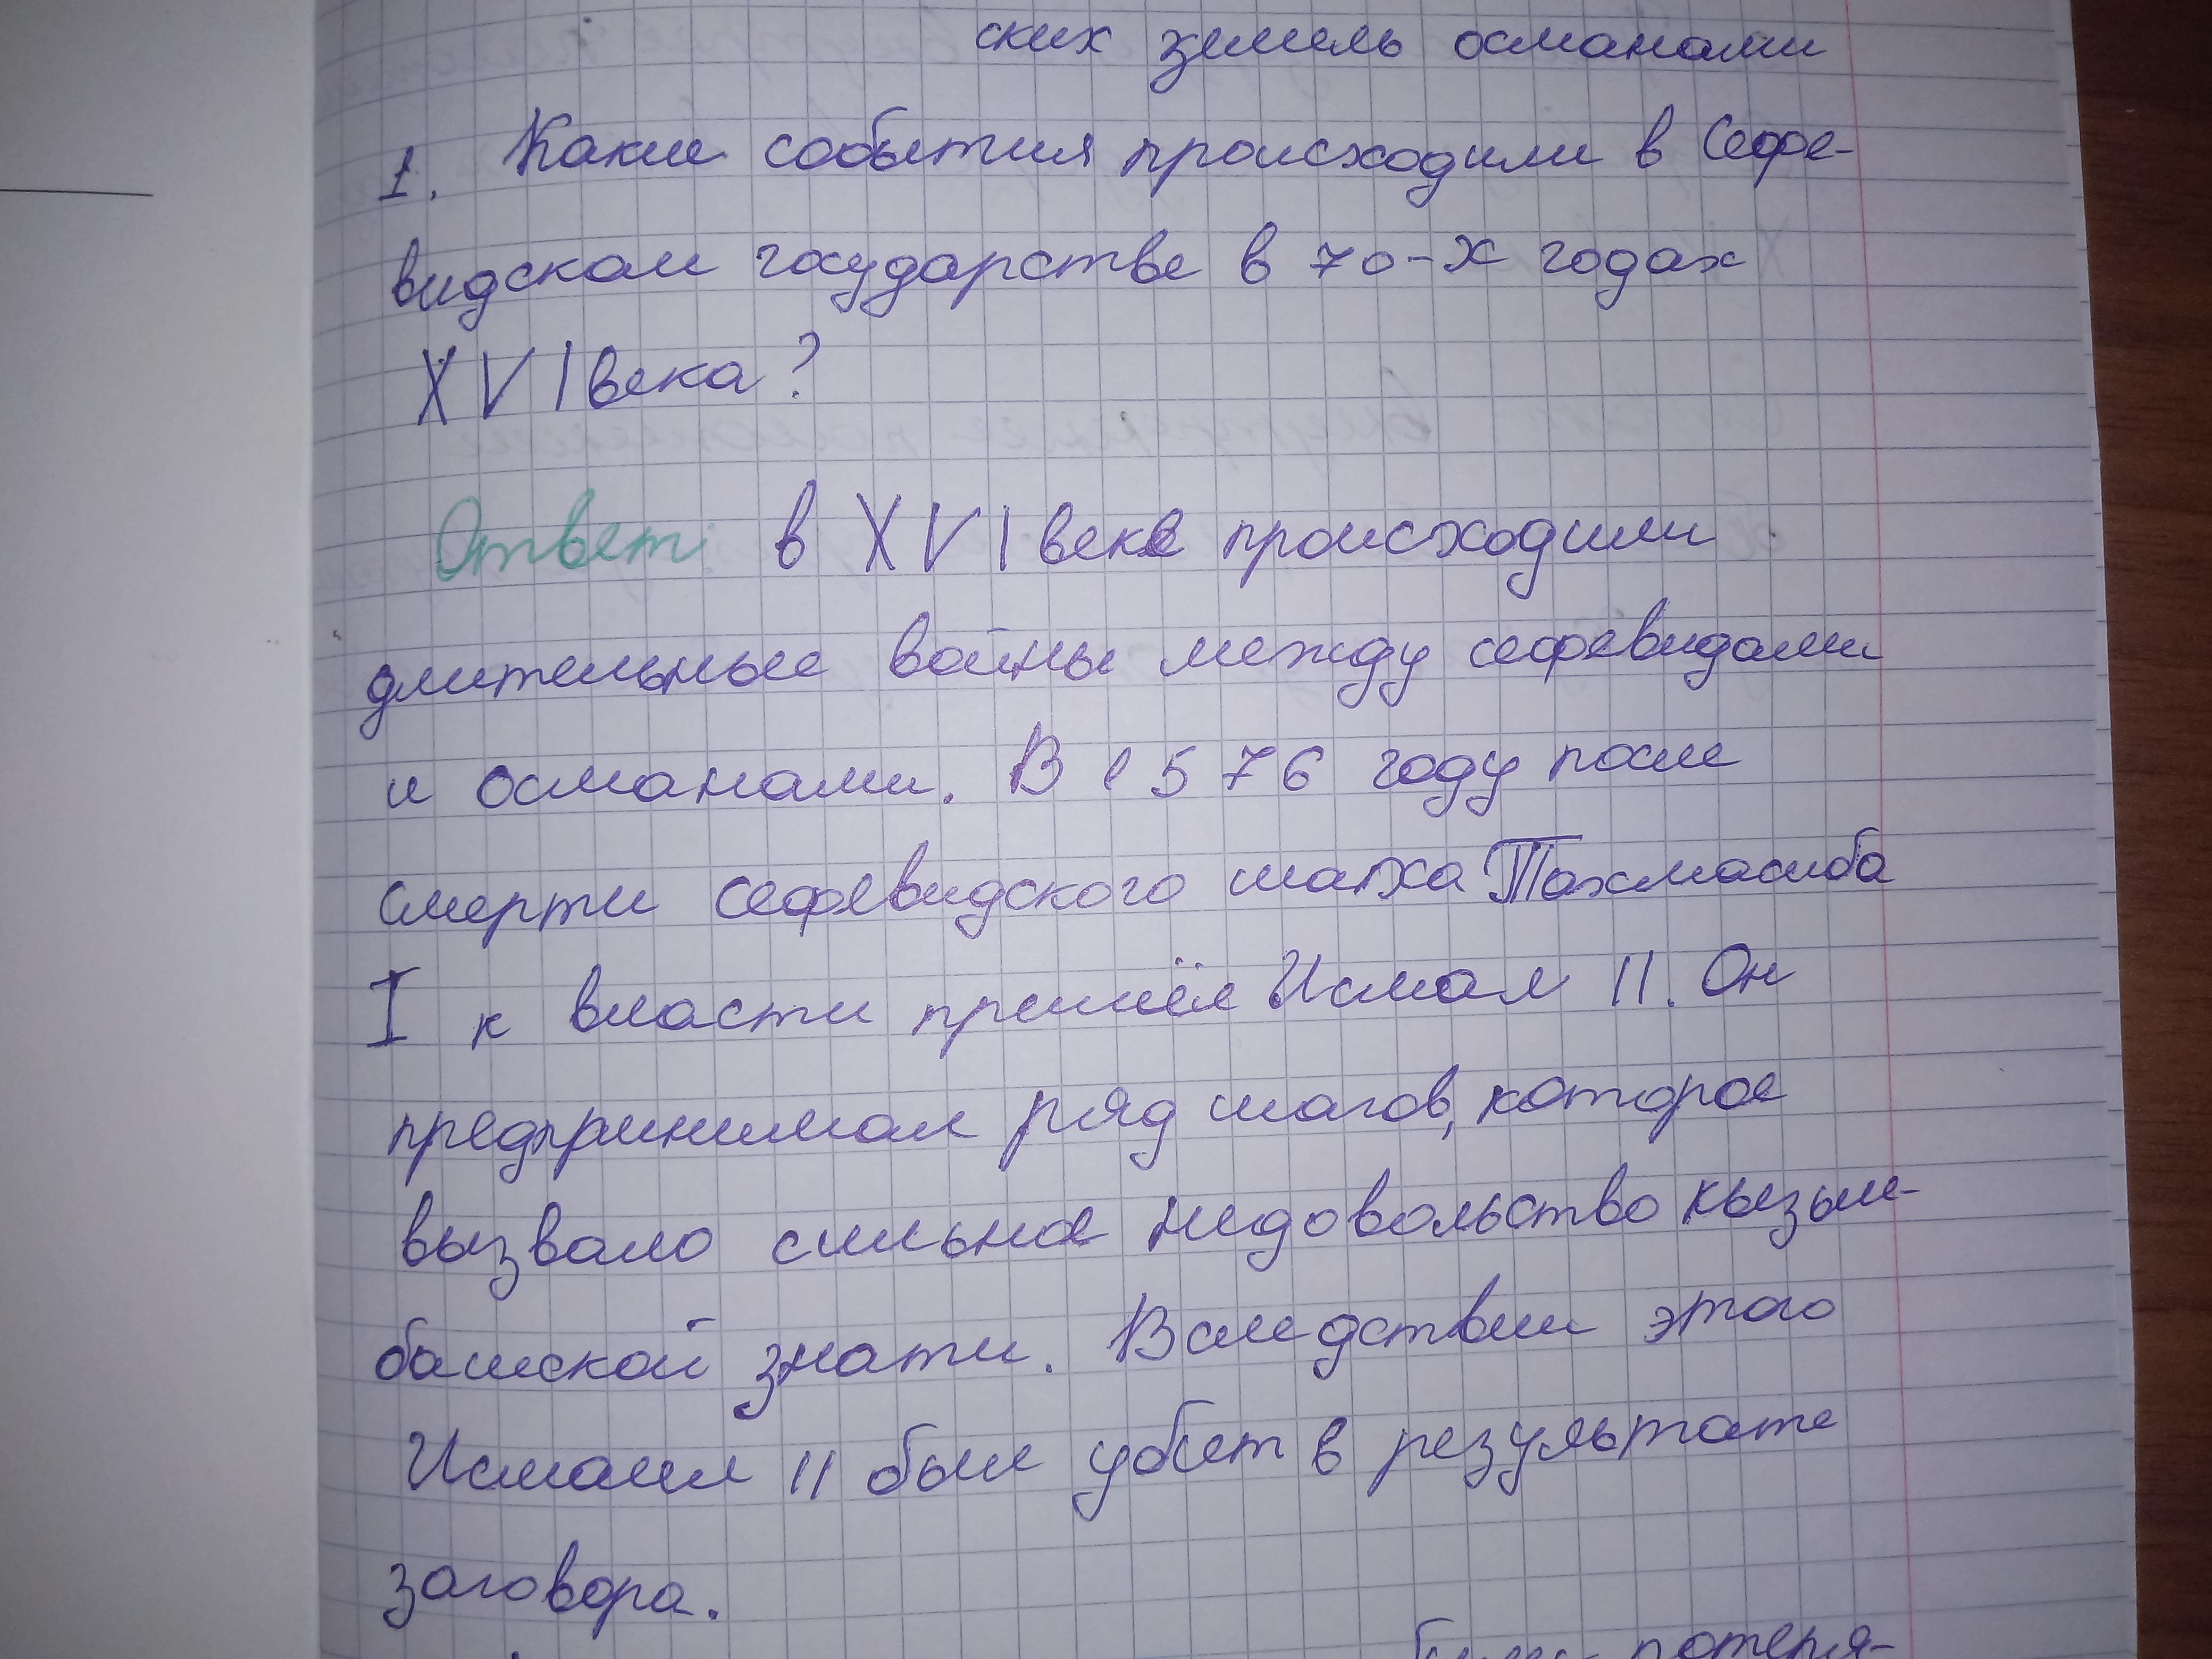 ских земель османами
1. Какие события происходили в Сефе-
видском государстве в 70-х годах
XVI века?
Ответ: в XVI веке происходили
длительные войны между сефевидами
и османами. В 1576 году после
смерти сефевидского шаха Тахмасиба
I к власти пришёл Исмаил II. Он
предпринимал ряд шагов, которое
вызвало сильное недовольство кызыл-
башской знати. Вследствии этого
Исмаил II был убит в результате
заговора.
потеря-